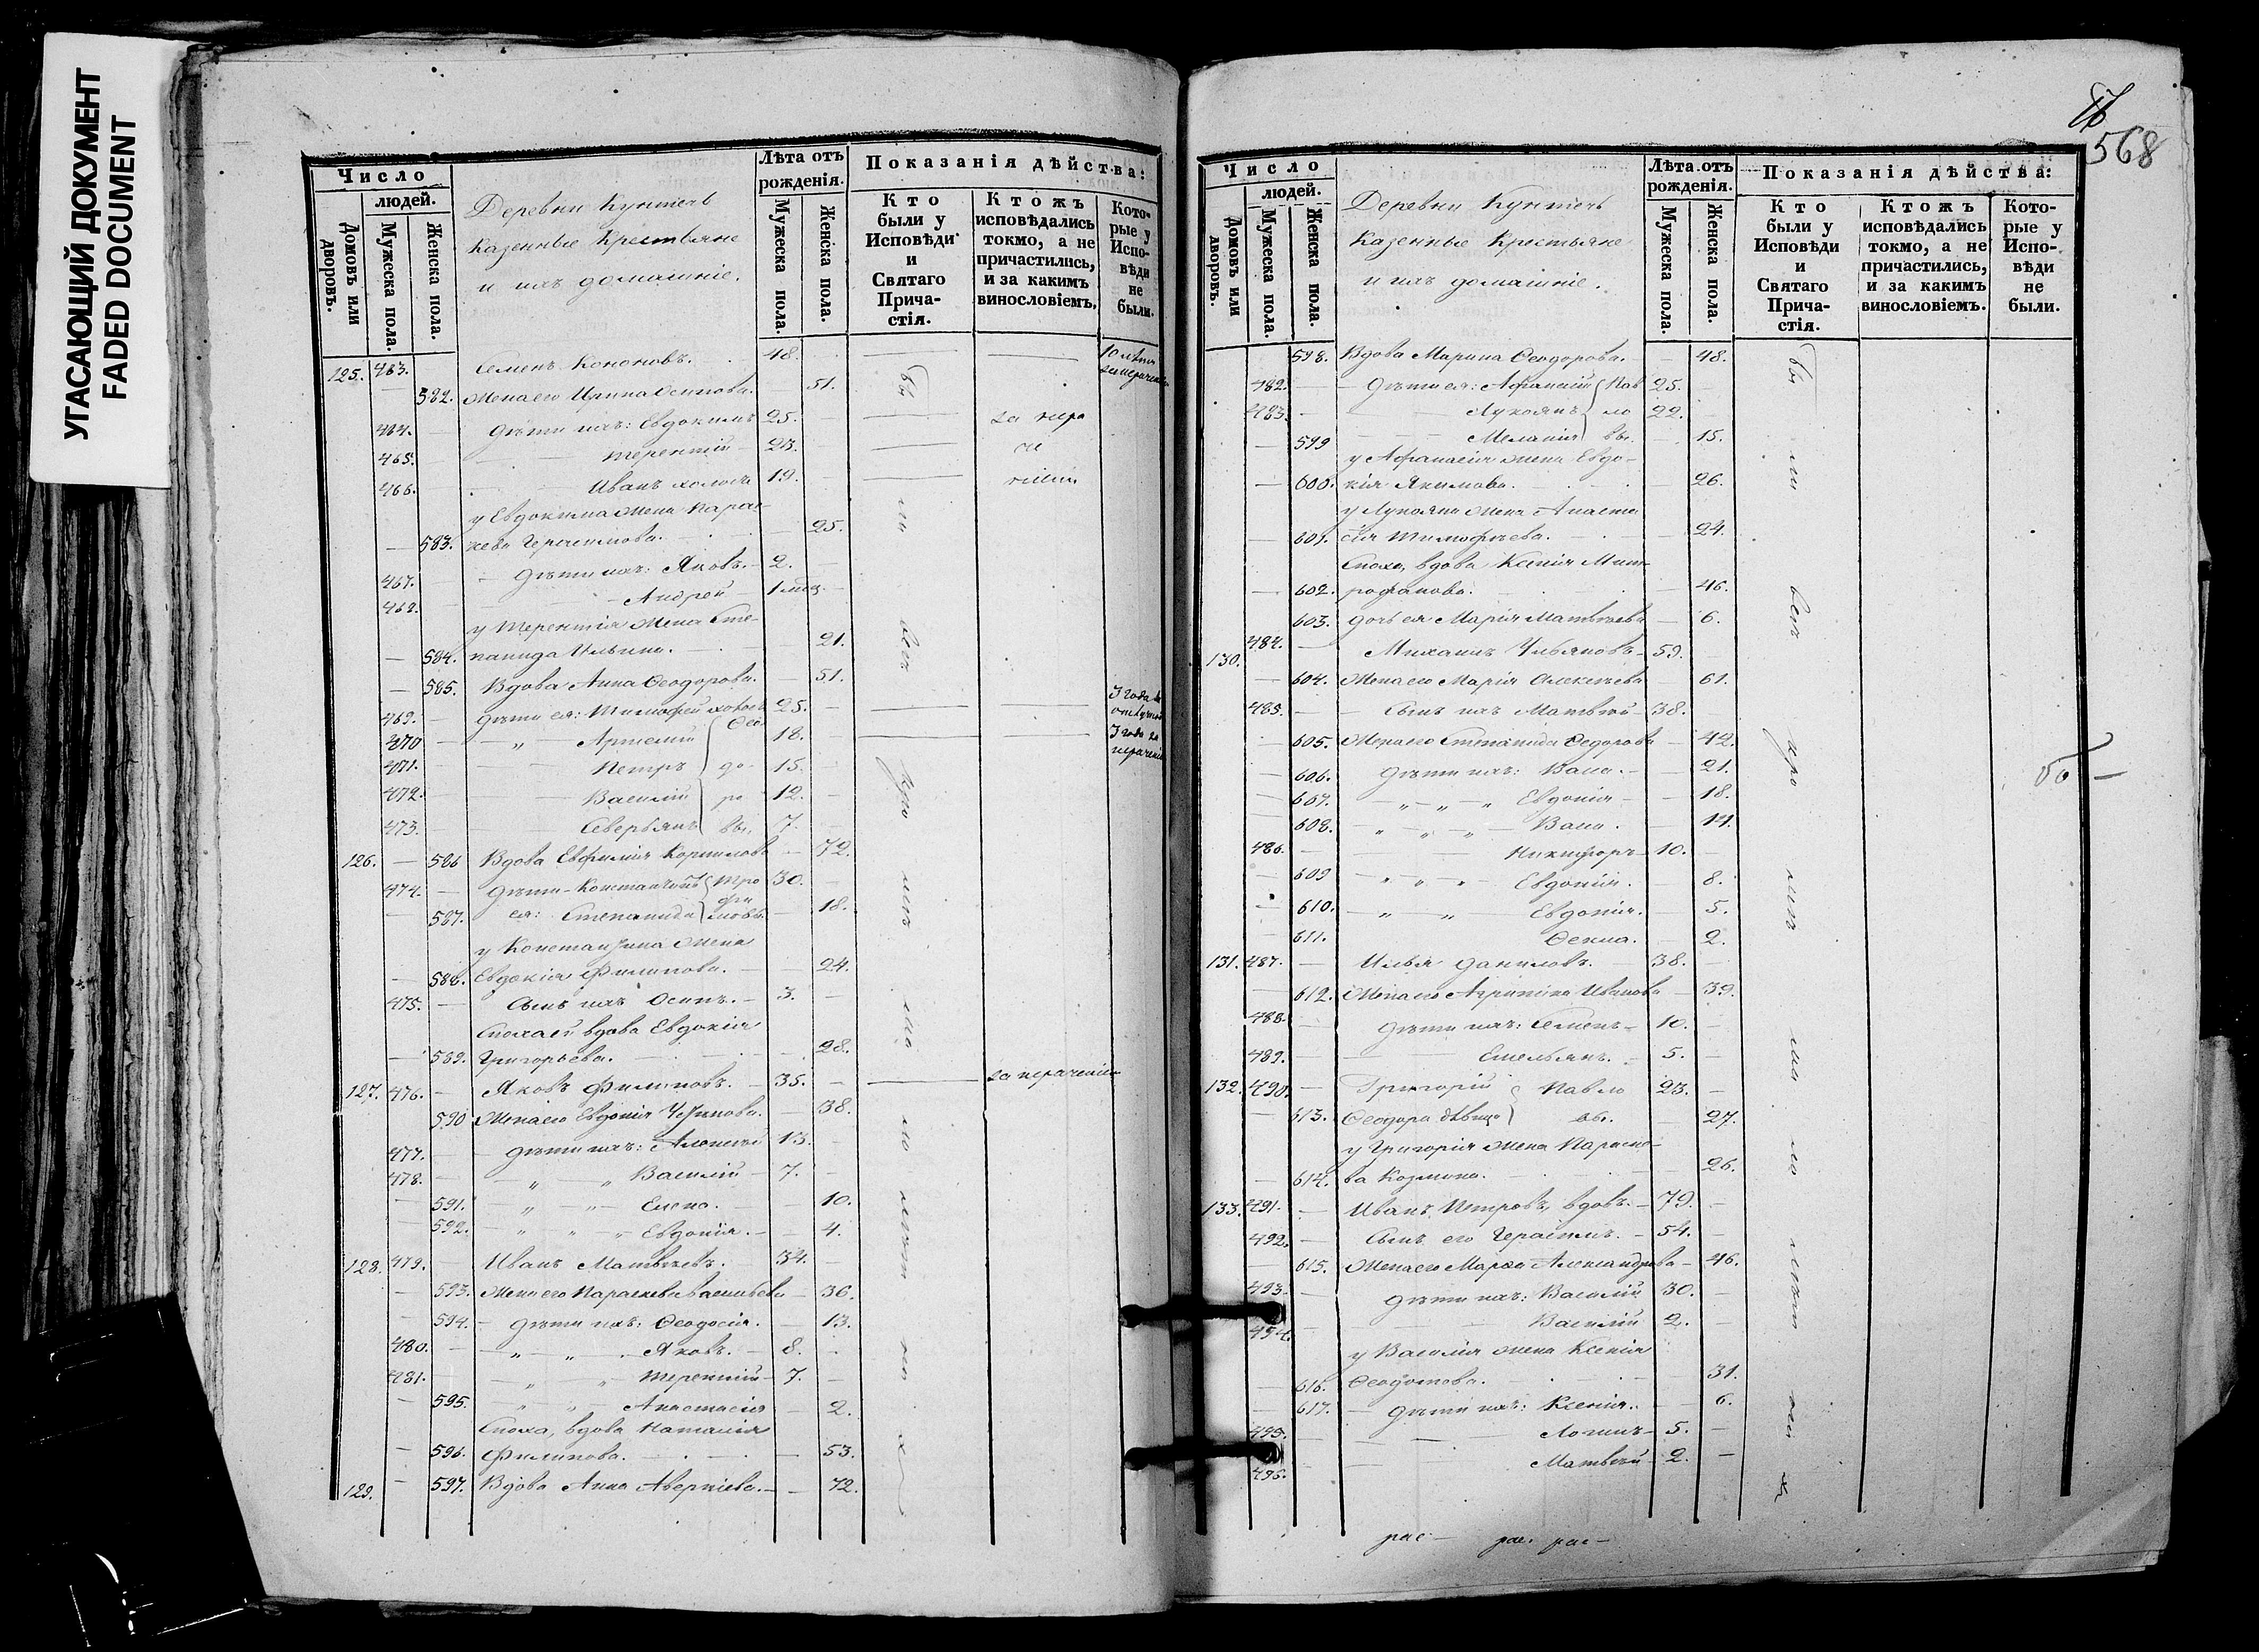 УГАСАЮЩИЙ ДОКУМЕНТ
FADED DOCUMENT
Число
людей.
Домовъ или дворовъ.
Мужеска пола.
Женска пола.
Деревни Кунтечь
Казенные Крестьяне
и ихъ домашніе.
Лѣта отъ рожденія.
Мужеска пола.
Женска пола.
Показанія дѣйства:
Кто были у Исповѣди и Святаго Прича-стія.
Ктожъ исповѣдались токмо, а не причастились, и за какимъ винословіемъ.
Кото-рые у Испо-вѣди не были.
125. 463. Семенъ Кононовъ. 48.
582. Жена его Ирина Осипова. 51.
464. Дѣти ихъ: Евдокимъ 25. за нера
465. Терентій 23. че
466. Иванъ холостъ 19. ніемъ
у Евдокима жена Парас-
583. кева Герасимова. 25.
467. Дѣти ихъ: Яковъ. 2.
468. Андрей 1 мѣс.
у Терентія жена Сте-
584. панида Ильина. 21.
585. Вдова Анна Ѳеодорова. 51.
469. Дѣти ея: Тимофей холостъ 25. 3 года въ отлучкѣ
470 Артемій Ѳео 18. 3 года за нераченіе
471. Петръ до- 15.
472. Василій ро 12.
473. Северьянъ вы. 7.
126. 586 Вдова Евфимія Корнилова 72.
474. Дѣти Константинъ Тро 30.
587. ея: Степанида фи мовы. 18.
у Константина жена
588. Евдокія Филипова. 24.
475. Сынъ ихъ Осипъ. 3.
Сноха ея вдова Евдокія
589. Григорьева. 28.
127. 476. Яковъ Филиповъ. 35. за нераченіем
590 Жена его Евдокія 38.
477. Дѣти ихъ: Алексѣй 13.
478. Василій 7.
591. Елена. 10.
592. Евдокія. 4.
128. 479. Иванъ Матвѣевъ. 34.
593. Жена его Параскева Васильева 36.
594. Дѣти ихъ: Ѳеодосія. 13.
480. Яковъ. 8.
481. Терентій 7.
595. Анастасія 2.
Сноха, вдова Наталія
596. Филипова. 53.
129. 597. Вдова Анна Аверкіева. 72.
568
Число
людей.
Домовъ или дворовъ.
Мужеска пола.
Женска пола.
Деревни Кунтечь
Казенные Крестьяне
и ихъ домашніе.
Лѣта отъ рожденія.
Мужеска пола.
Женска пола.
Показанія дѣйства:
Кто были у Исповѣди и Святаго Прича-стія.
Ктожъ исповѣдались токмо, а не причастились, и за какимъ винословіемъ.
Кото-рые у Испо-вѣди не были.
598. Вдова Марина Ѳеодорова. 48.
482. Дѣти ея: Афанасій Пав 25.
483. Лукоянъ ло 22.
599 Меланія вы. 15.
у Афанасія жена Евдо-
600. кія Якимова. 26.
у Лукояна жена Анаста
601. сія Тимофѣева. 24.
Сноха, вдова Ксенія Мит-
602. рофанова. 46.
603. дочь ея Марія Матвѣева 6.
130. 484. Михаилъ Ульяновъ 59.
604. Жена его Марія Алексѣева 61.
485. Сынъ ихъ Матвѣй 38.
605. Жена его Степанида Ѳедорова 42.
606. Дѣти ихъ: Васа. 21.
607. Евдокія 18.
608. Васа. 14.
486. Никифоръ 10.
609 Евдокія. 8.
610. Евдокія. 5.
611. Ѳекла. 2.
131. 487. Илья Даниловъ. 38.
612. Жена его Агрипина Иванова 39.
488. Дѣти ихъ: Семенъ 10.
489. Емельянъ. 5.
132. 490. Григорій Павло 23.
613. Ѳеодора дѣвица вы. 27.
у Григорія жена Параске-
614. ва Козмина. 26.
133. 491. Иванъ Петровъ, вдовъ. 79.
492. Сынъ его Герасимъ. 54.
615. Жена его Марѳа Александрова 46.
493. Дѣти ихъ: Василій 30.
494. Василій 2.
у Василія жена Ксенія
616. 31.
617. Дѣти ихъ: Ксенія. 6.
495. Логинъ 5.
496. Матвѣй 2.